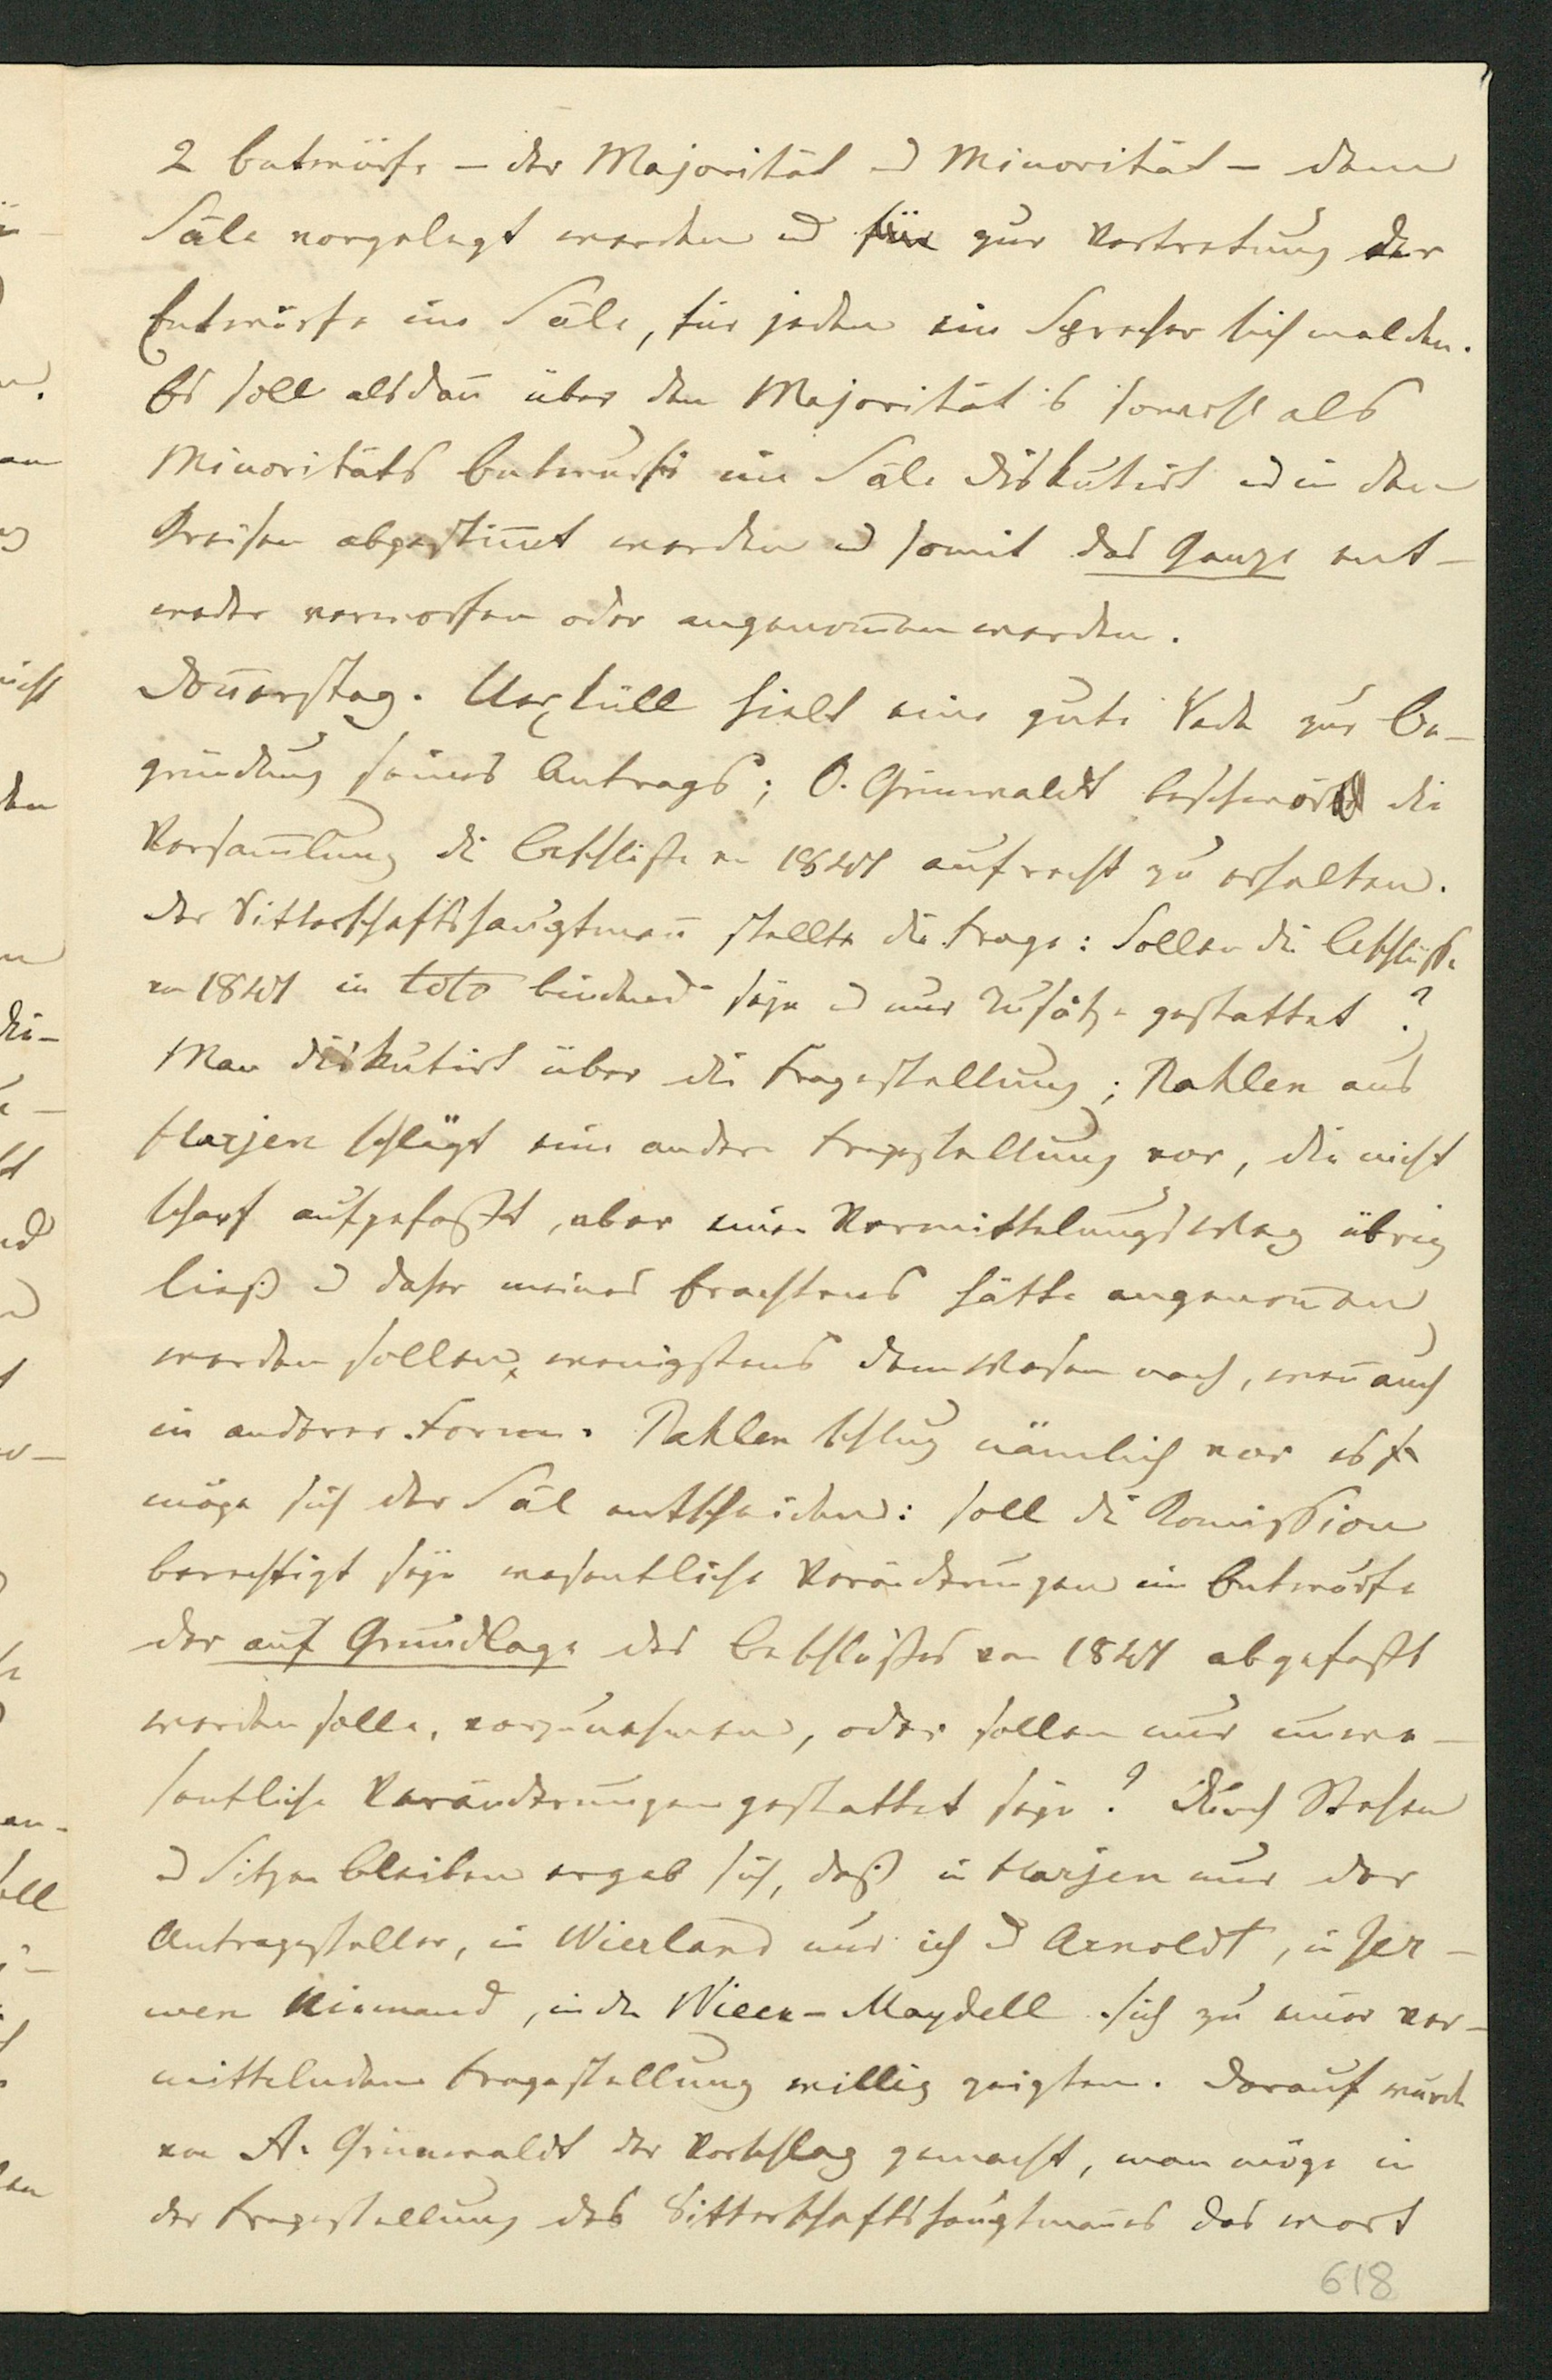 2 Entwürfe – der Majorität u Minorität – dem
Säle vorgelegt werden u für zur Vertretung der
Entwürfe im Säle, für jeden ein Sprecher sich melden.
Es soll alsdan̄ über den Majoritäts sowohl als
Minoritäts Entwurfe im Säle diskutirt u in den
Kreisen abgestim̄t werden u somit das Ganze ent-
weder verworfen oder angenom̄en werden.
Don̄erstag. Uexküll hielt eine gute Rede zur Be-
gründung seines Antrags; O. Grünwaldt beschwört die
Versam̄lung die Beschlüße v 1847 aufrecht zu erhalten.
Der Ritterschaftshauptman̄ stellte die Frage: Sollen die Beschlüße
von 1847 in toto bindend seyn u nur Zusätze gestattet?
Man diskutirt über die Fragestellung; Pahlen aus
Harjen schlägt eine andere Fragestellung vor, die nicht
scharf aufgefaßt, aber einen Vermittelungsweg übrig
ließ u daher meines Erachtens hätte angenom̄en
werden sollen, wenigstens dem Wesen nach, wen̄ auch
in anderer Form. Pahlen schlug nämlich vor es
möge sich der Sal entscheiden: soll die Kom̄ission
berechtigt seyn wesentliche Veränderungen im Entwurfe
der auf Grundlage des Beschlußes von 1847 abgefaßt
werden solle, vorzunehmen, oder sollen nur unwe-
sentliche Veränderungen gestattet seyn? Durch Stehen
u Sitzen bleiben ergab sich, daß in Harjen nur der
Antragsteller, in Wierland nur ich u Arnoldt, in Jer-
wen Niemand, in der Wieck – Maydell sich zu einer ver-
mittelnden Fragestellung willig zeigten. Darauf wurde
von A. Grünewaldt der Vorschlag gemacht, man möge in
der Fragestellung des Ritterschaftshauptman̄es das Wort
618